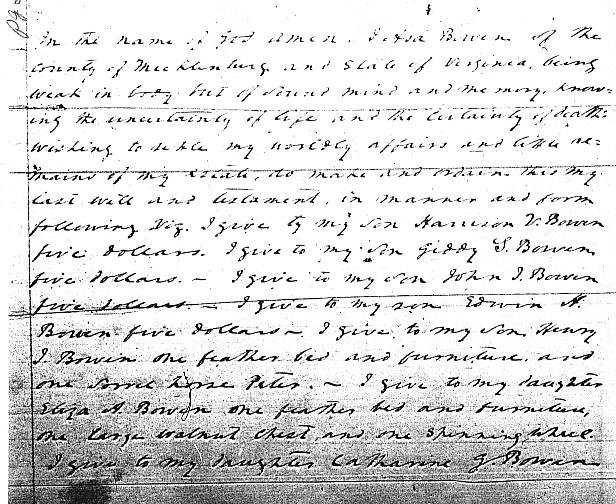 In the name of God Amen. I Asa Bowen of the
County of Mecklenburg and State of Virginia, being
weak in body but of sound mind and memory, know=
ing the uncertainty of life and the certainty of death
wishing to settle my worldly affairs and little re=
mains of my estate, do make and ordain this my
last will and testament, in manner and form
following Viz. I give to my son Harrison V. Bowen
five dollars. I give to my son Giddy S. Bowen
five dollars. – I give to my son John J. Bowen
five dollars. – I give to my son Edwin A.
Bowen five dollars – I give to my son Henry
J. Bowen one feather bed and furniture, and
one Sorrel horse Peter. – I give to my daughter
Eliza A. Bowen one feather bed and furniture,
one large walnut chest, and one spinning wheel.
I give to my daughter Catharine G. Bowen